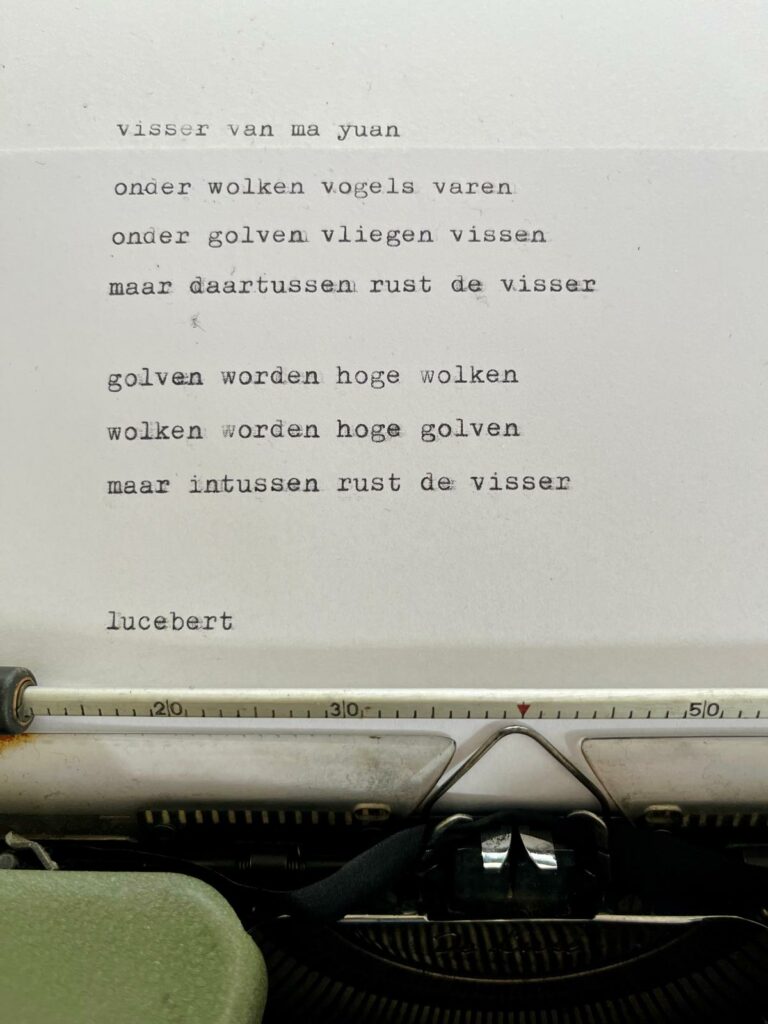 visser van ma yuan
onder wolken vogels varen
onder golven vliegen vissen
maar daartussen rust de visser
golven worden hoge wolken
wolken worden hoge golven
maar intussen rust de visser
lucebert
20 30 50